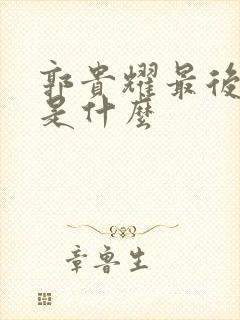 郭貴耀最後
是什麼
章魯生